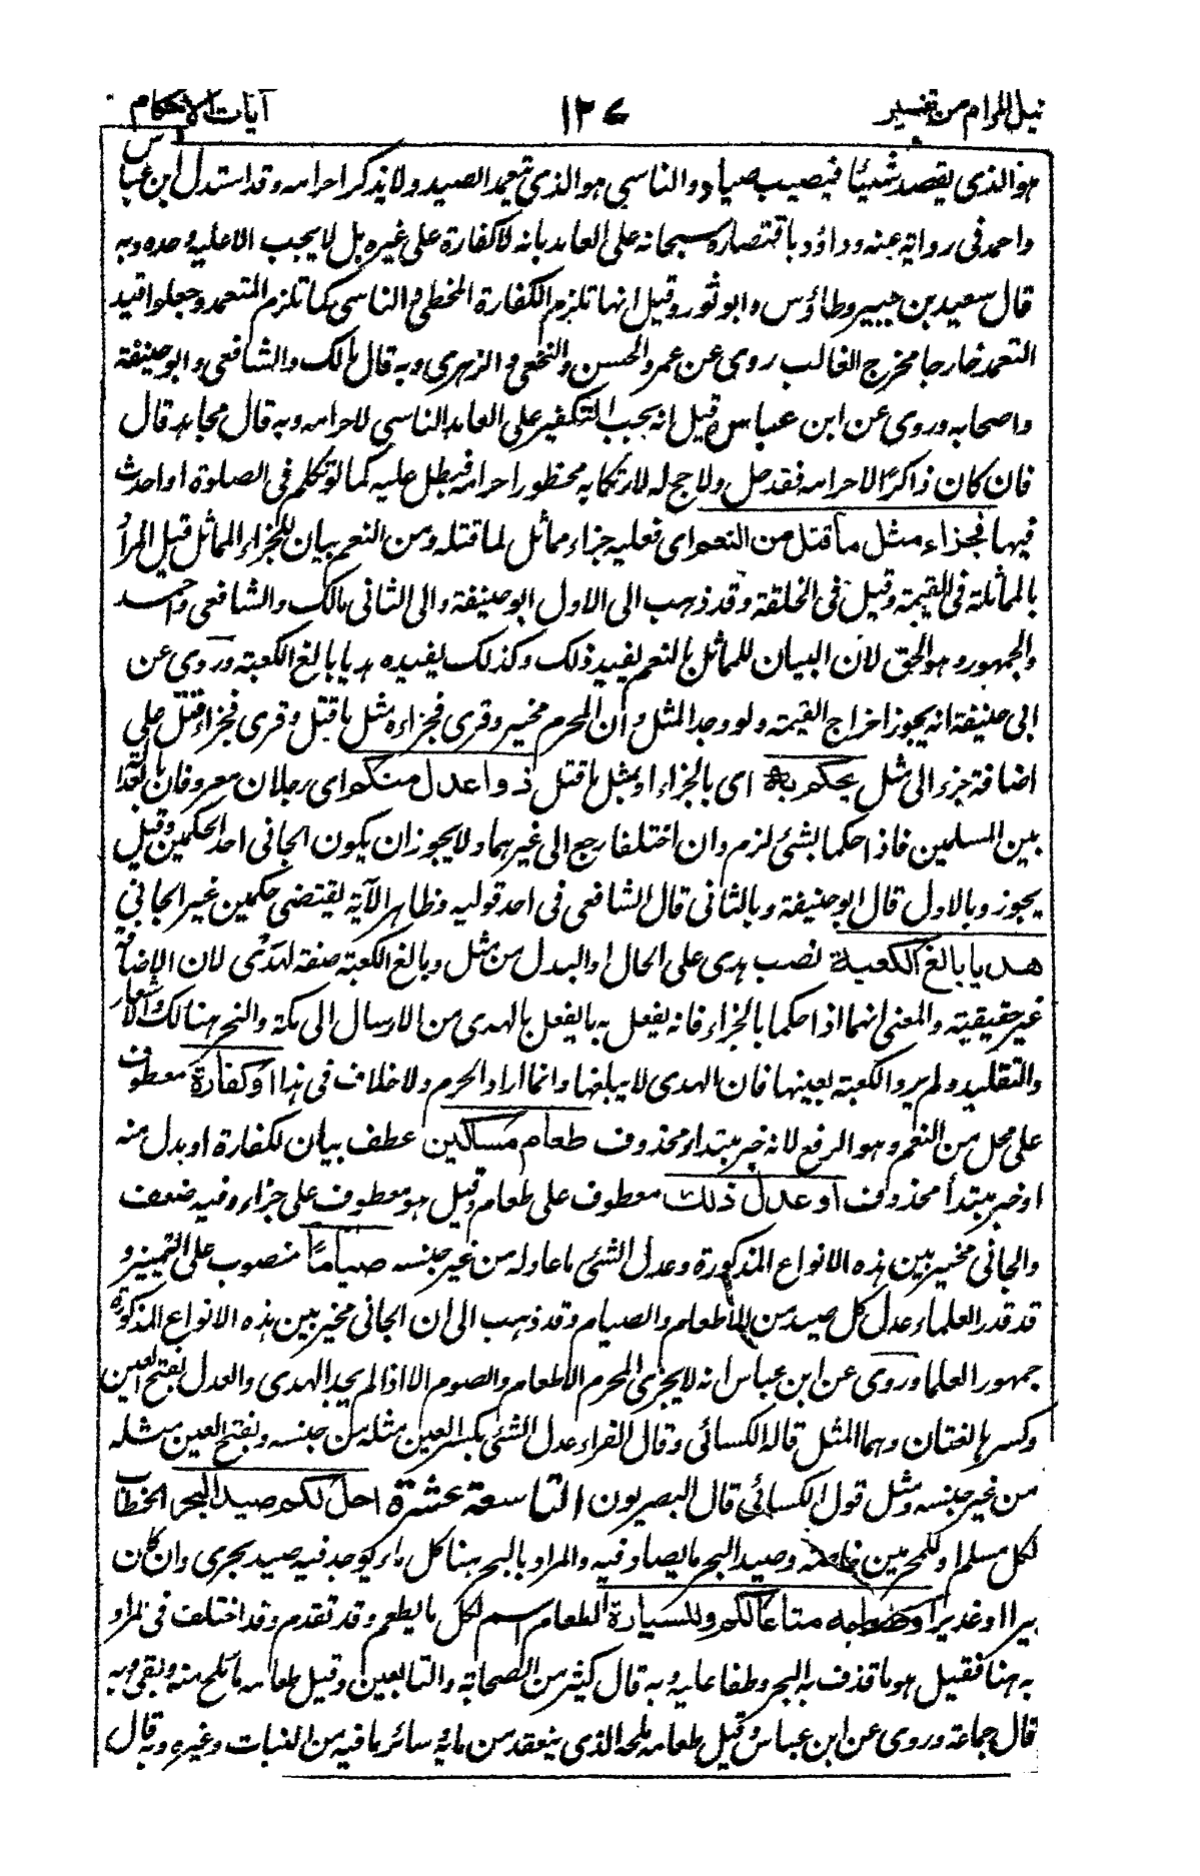 نيل المرام من تفسير ١٢٧ آيات الاحكام
هو الذى يقصد شيئا فيصيب صيادا والناسى هو الذى يتعمد الصيد ولا يذكر احرامه وقد استدل ابن عباس
واحمد فى رواية عنه وداؤد باقتصاره سبحانه على العامد بانه لا كفارة على غيره بل لا يجب الا عليه وحده وبه
قال سعيد بن جبير وطاؤس وابو ثور وقيل انها تلزم الكفارة المخطى والناسى كما تلزم المتعمد وجعلوا قيد
التعمد خارجا مخرج الغالب روى عن عمر والحسن والنخعى والزهرى وبه قال مالك والشافعى وابو حنيفة
واصحابه وروى عن ابن عباس وقيل انه يجب التكفير على العامد الناسى لاحرامه وبه قال مجاهد قال
فان كان ذاكرًا لاحرامه فقد حل ولا حج له لارتكابه محظور احرامه فبطل عليه كما لو تكلم فى الصلوة او احدث
فيها فجزاء مثل ما قتل من النعم اى فعليه جزاء مماثل لما قتله ومن النعم بيان للجزاء المماثل قيل المراد
بالمماثلة فى القيمة وقيل فى الخلقة وقد ذهب الى الاول ابو حنيفة والى الثانى مالك والشافعى واحمد
والجمهور وهو الحق لان البيان للمماثل بالنعم يفيد ذلك وكذلك يفيده هديا بالغ الكعبة وروى عن
ابى حنيفة انه يجوز اخراج القيمة ولو وجد المثل وان المحرم مخير وقرى فجزاءه مثل ما قتل وقرى فجزاء قتل على
اضافة جزء الى مثل يحكم به اى بالجزاء او بمثل ما قتل ذوا عدل منكم اى رجلان معروفان بالعدالة
بين المسلمين فاذا حكما بشئ لزم وان اختلفا رجع الى غيرهما ولا يجوز ان يكون الجانى احد الحكمين وقيل
يجوز وبالاول قال ابو حنيفة وبالثانى قال الشافعى فى احد قوليه وظاهر الآية يقتضى حكمين غير الجانى
هديا بالغ الكعبة نصب هدى على الحال او البدل من مثل وبالغ الكعبة صفة لهدى لان الاضافة
غير حقيقية والمعنى انهما اذا حكما بالجزاء فانه يفعل به ما يفعل بالهدى من الارسال الى مكة والنحر هنالك والاشعار
والتقليد ولم يرد الكعبة بعينها فان الهدى لا يبلغها وانما اراد الحرم ولا خلاف فى هذا او كفارة معطوف
على محل من النعم وهو الرفع لانه خبر مبتداء محذوف طعام مساكين عطف بيان لكفارة او بدل منه
او خبر مبتدأ محذوف او عدل ذلك معطوف على طعام وقيل هو معطوف على جزاء وفيه ضعف
والجانى مخير بين هذه الانواع المذكورة وعدل الشئ ما عادله من غير جنسه صيامًا منصوب على التمييز و
قد قدر العلماء عدل كل صيد من الاطعام والصيام وقد ذهب الى ان الجانى مخير بين هذه الانواع المذكورة
جمهور العلما وروى عن ابن عباس انه لا يجزى المحرم الاطعام والصوم الا اذا لم يجد الهدى والعدل بفتح العين
وكسرها لغتان وهما المثل قاله الكسائى وقال الفراء عدل الشئ بكسر العين مثله من جنسه وبفتح العين مثله
من غير جنسه ومثل قول الكسائى قال البصريون التاسعة عشرة احل لكم صيد البحر الخطاب
لكل مسلم او للمحرمين خاصة وصيد البحر ما يصاد فيه والمراد بالبحر هنا كل ماء يوجد فيه صيد بحرى وان كان
بيرا او غديرا وطعامه متاعا لكم وللسيارة الطعام اسم لكل ما يطعم وقد تقدم وقد اختلف فى المراد
به هنا فقيل هو ما قذف به البحر وطفا عليه وبه قال كثير من الصحابة والتابعين وقيل طعامه ما ملح منه وبقى وبه
قال جماعة وروى عن ابن عباس وقيل طعامه ملحه الذى ينعقد من مائه وسائر ما فيه من النبات وغيره وبه قال